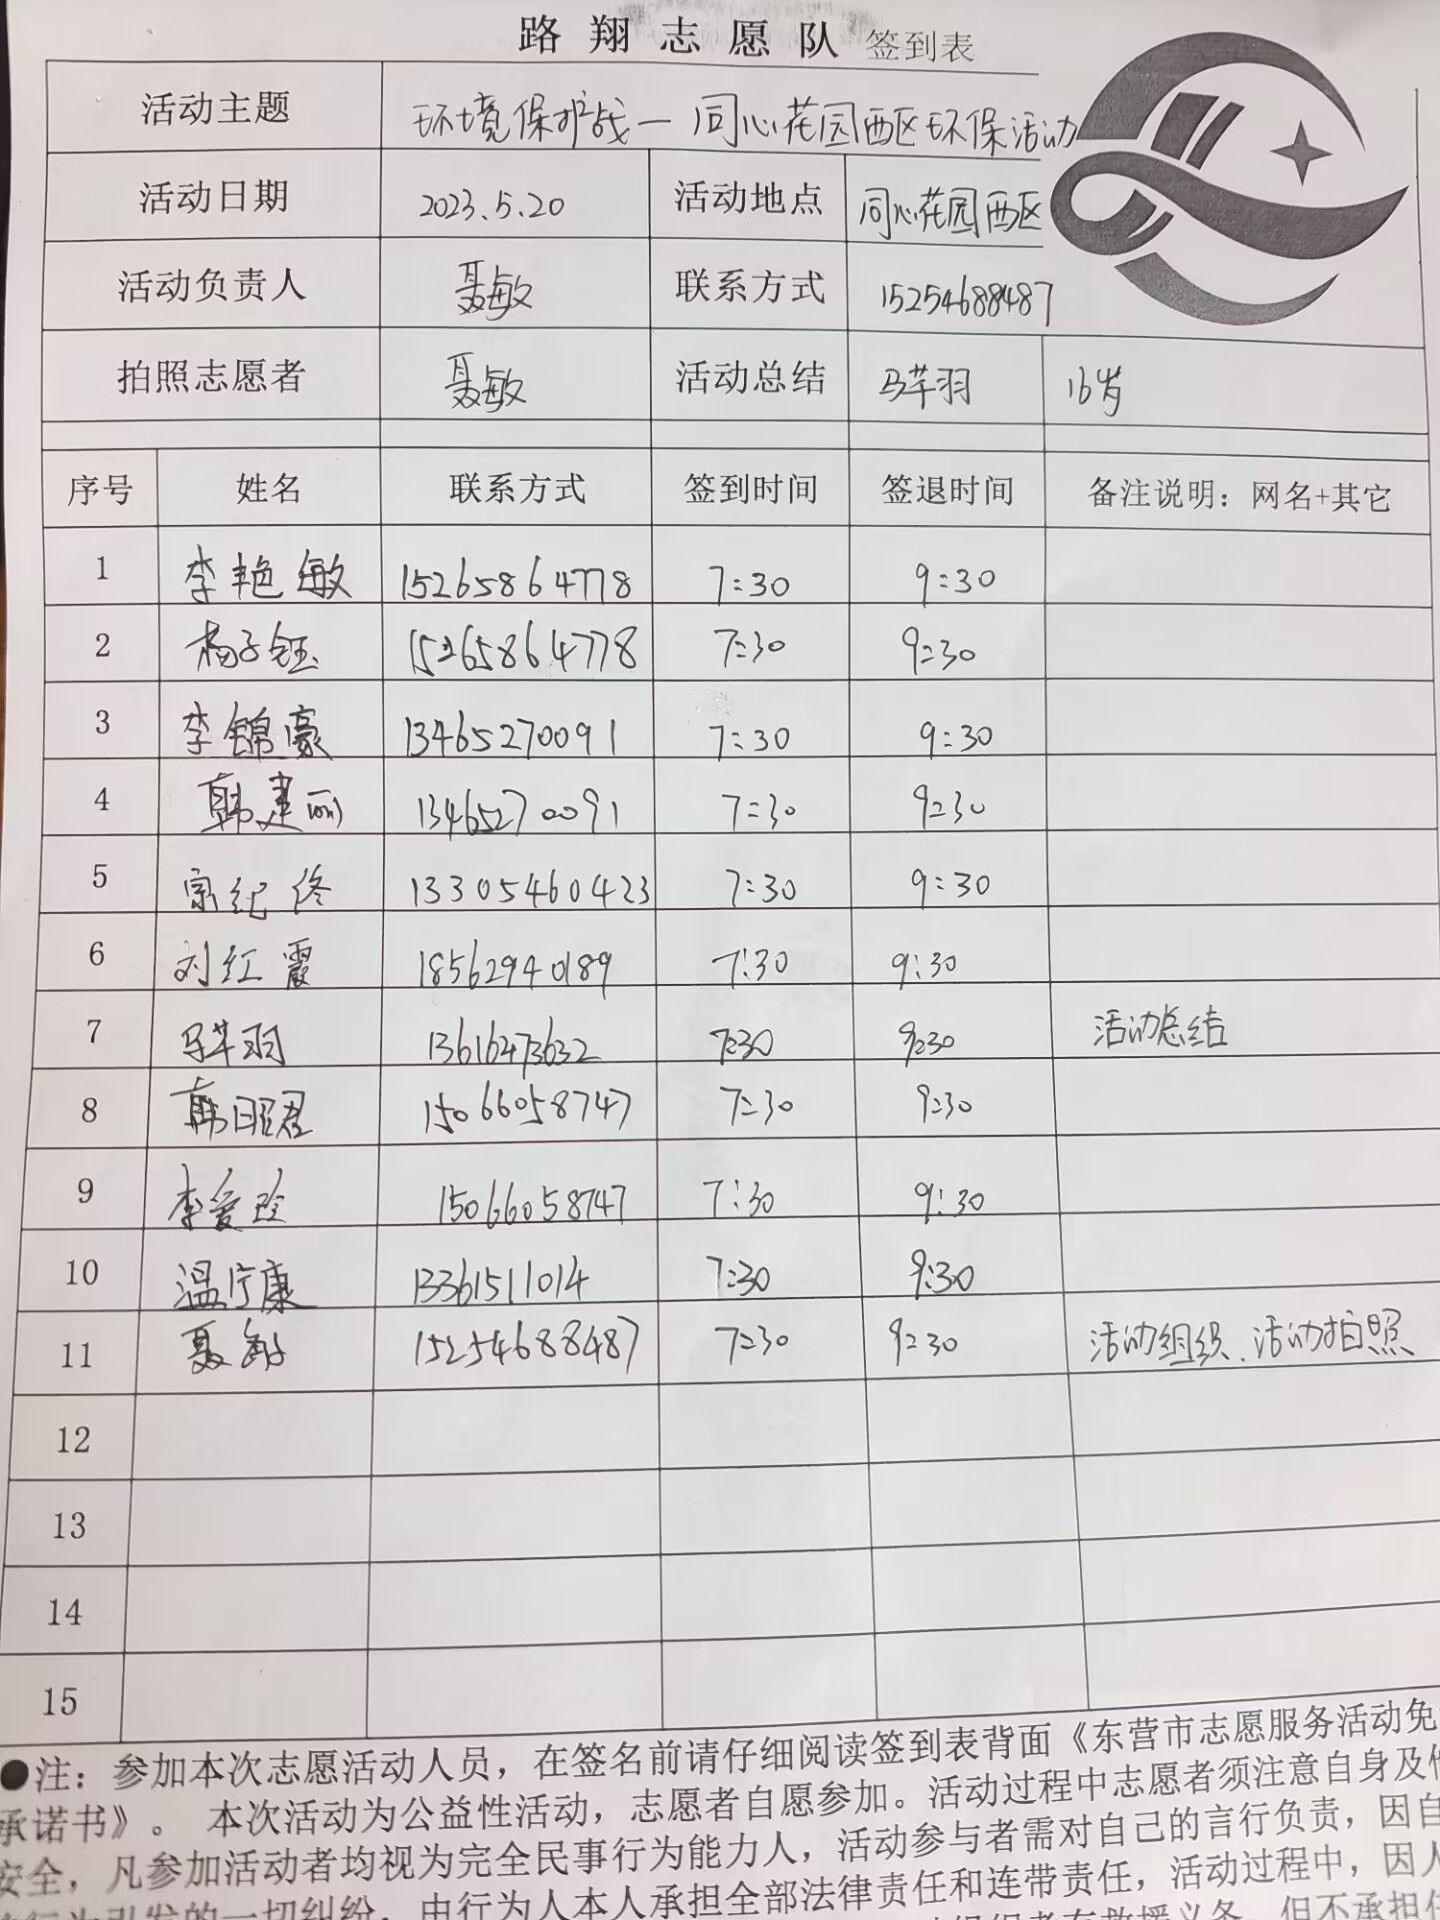 路翔志愿队 签到表
活动主题 环境保护战—同心花园西区环保活动
活动日期 2023.5.20 活动地点 同心花园西区
活动负责人 聂敏 联系方式 15254688487
拍照志愿者 聂敏 活动总结 马芊羽 16岁
序号 姓名 联系方式 签到时间 签退时间 备注说明：网名+其它
1 李艳敏 15265864778 7:30 9:30
2 杨子钰 15265864778 7:30 9:30
3 李锦豪 13465270091 7:30 9:30
4 韩建丽 13465270091 7:30 9:30
5 宗纪佟 13305460423 7:30 9:30
6 刘红霞 18562940189 7:30 9:30
7 马芊羽 13616473632 7:30 9:30 活动总结
8 韩昭君 15066058747 7:30 9:30
9 李爱玲 15066058747 7:30 9:30
10 温宁康 13361511014 7:30 9:30
11 聂敏 15254688487 7:30 9:30 活动组织、活动拍照
12
13
14
15
●注：参加本次志愿活动人员，在签名前请仔细阅读签到表背面《东营市志愿服务活动免
承诺书》。 本次活动为公益性活动，志愿者自愿参加。活动过程中志愿者须注意自身及他
安全，凡参加活动者均视为完全民事行为能力人，活动参与者需对自己的言行负责，因自
行为引发的一切纠纷，由行为人本人承担全部法律责任和连带责任，活动过程中，因人
组织者有救援义务，但不承担任